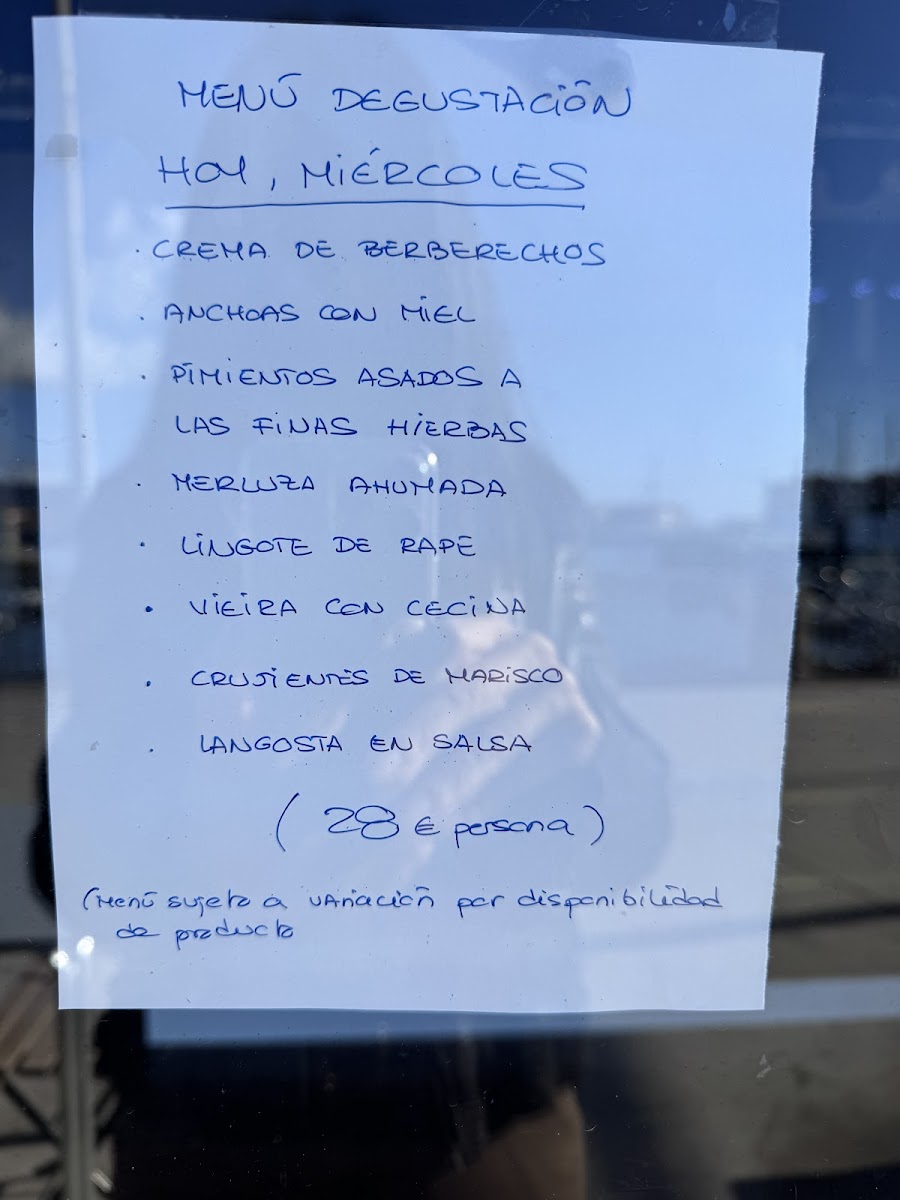 MENÚ DEGUSTACIÓN
HOY, MIÉRCOLES
· CREMA DE BERBERECHOS
· ANCHOAS CON MIEL
· PIMIENTOS ASADOS A
LAS FINAS HIERBAS
· MERLUZA AHUMADA
· LINGOTE DE RAPE
· VIEIRA CON CECINA
· CRUJIENTES DE MARISCO
· LANGOSTA EN SALSA
(28 € persona)
(Menú sujeto a variación por disponibilidad
de producto